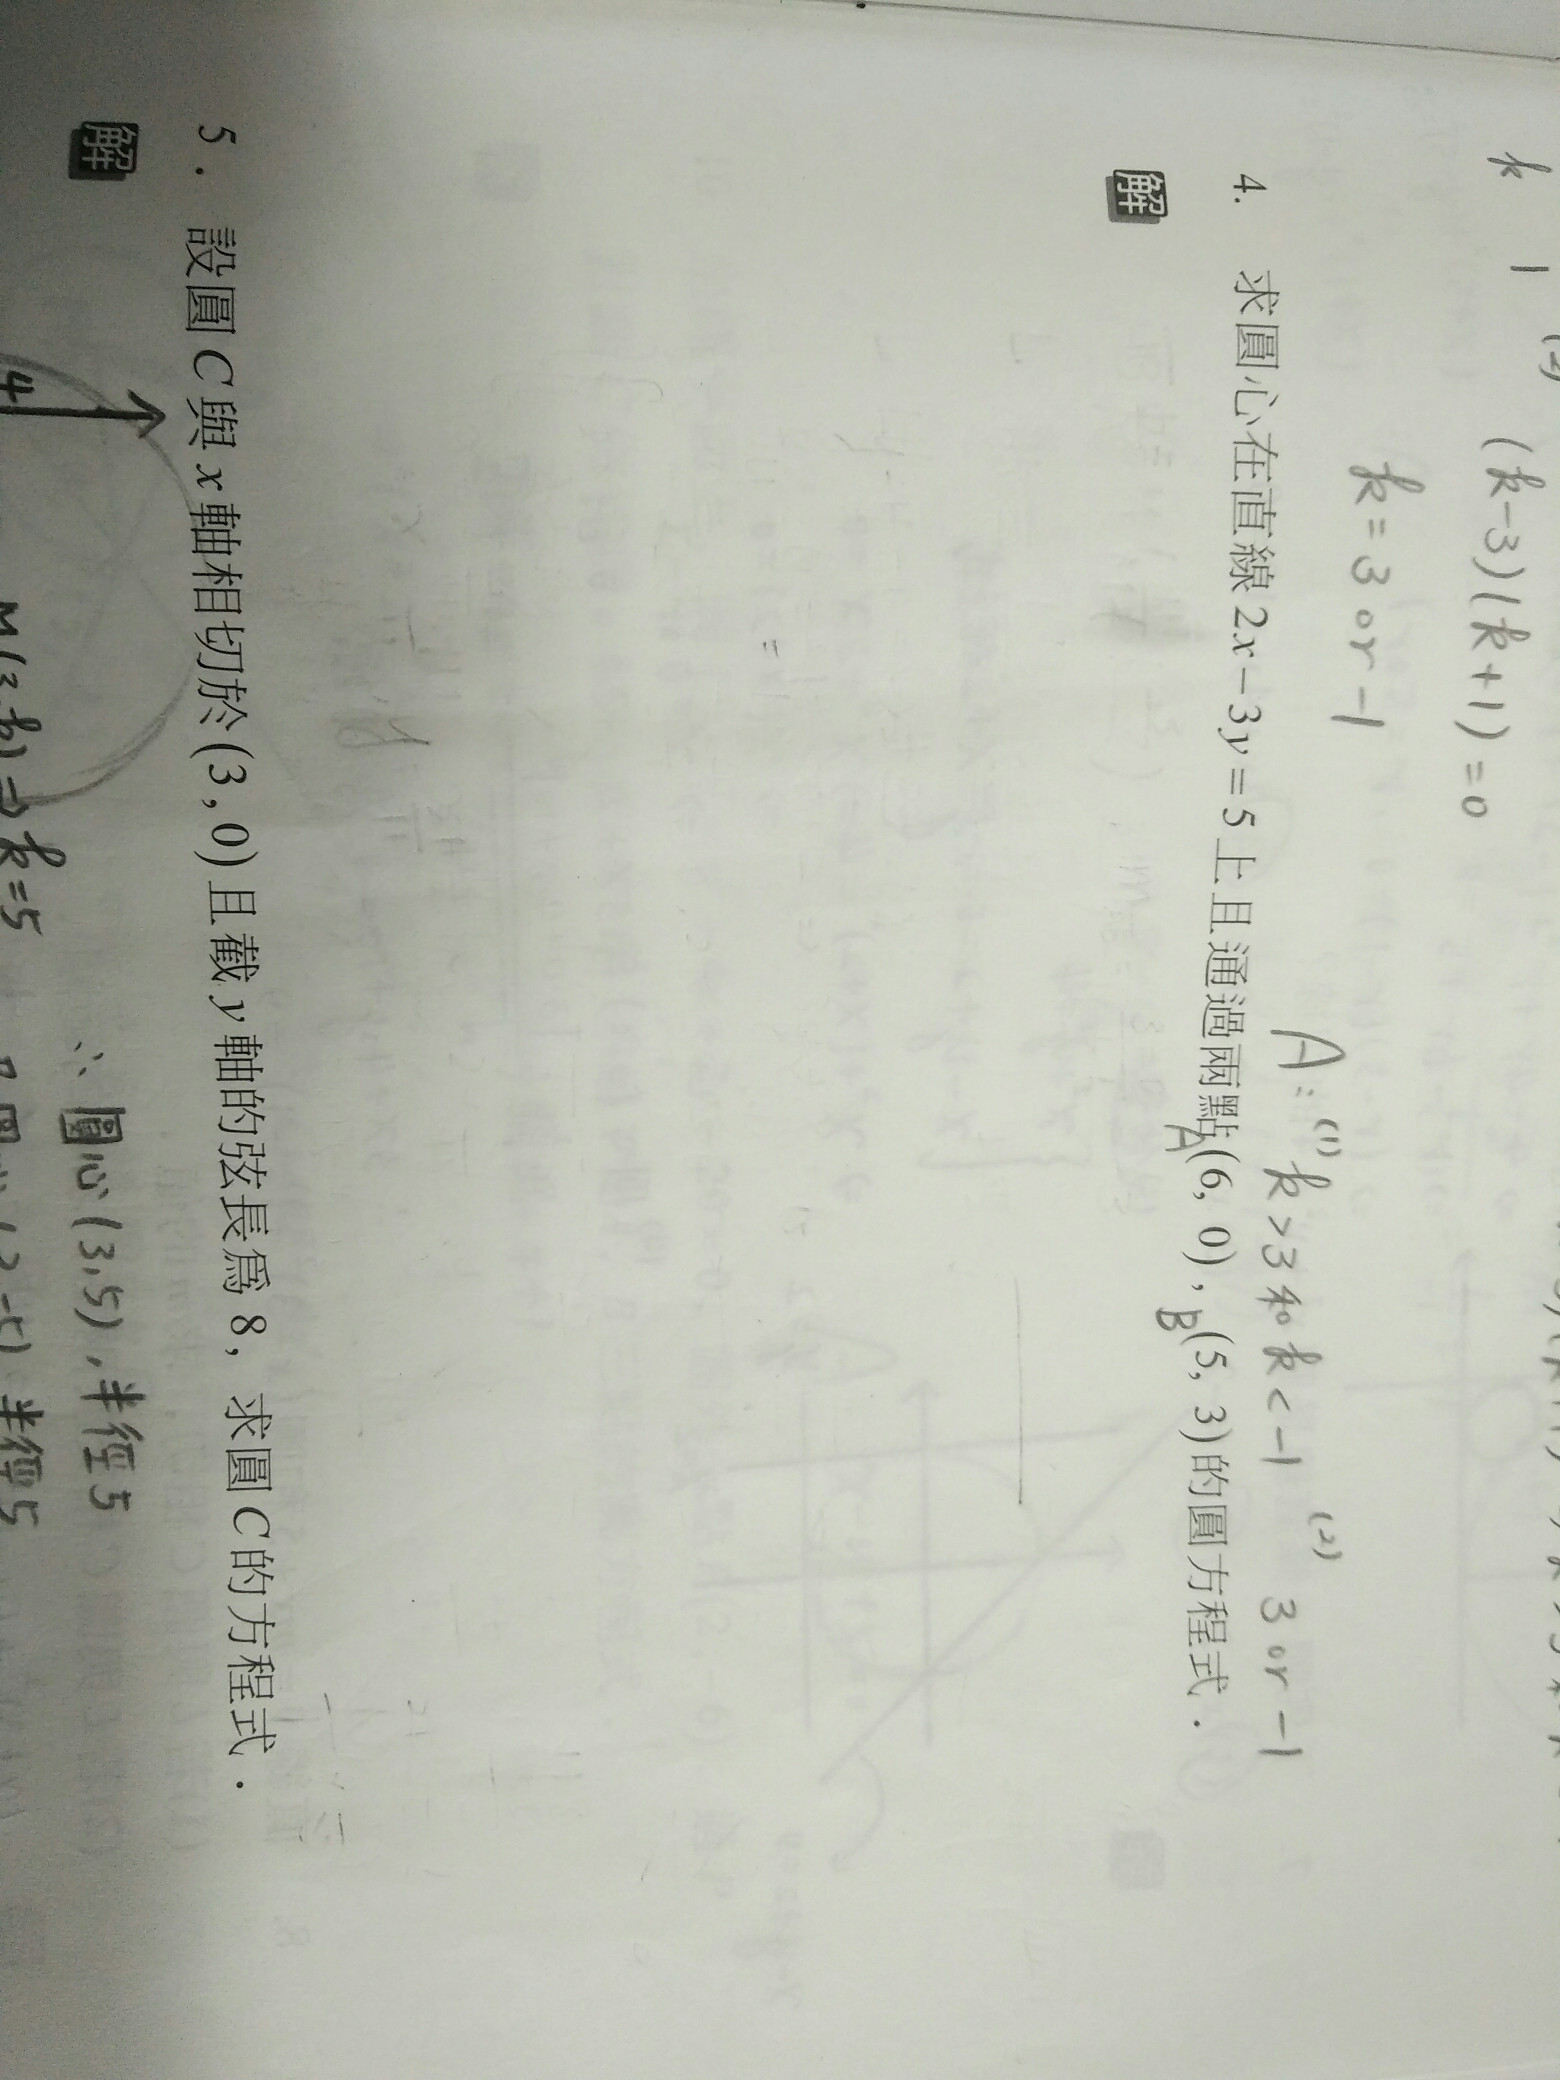 (k-3)(k+1)=0
k=3 or -1
A:(1) k>3和k<-1 (2) 3 or -1
4. 求圓心在直線2x-3y=5上且通過兩點(6, 0), (5, 3)的圓方程式.
A B
解
5. 設圓C與x軸相切於(3,0)且截y軸的弦長爲8, 求圓C的方程式.
解
∴圓心(3,5), 半徑5
4
⇒k=5
半徑5